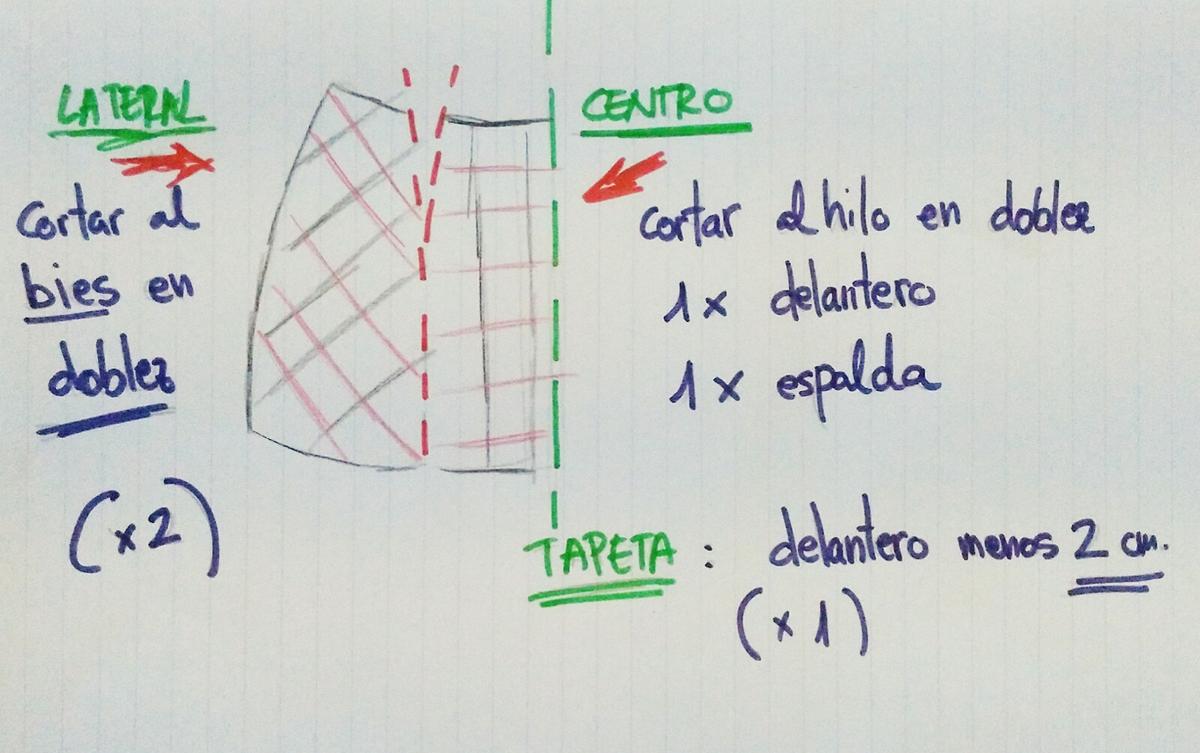 LATERAL
Cortar al
bies en
doblez
(x2)
CENTRO
cortar al hilo en doblez
1x delantero
1x espalda
TAPETA: delantero menos 2 cm.
(x1)